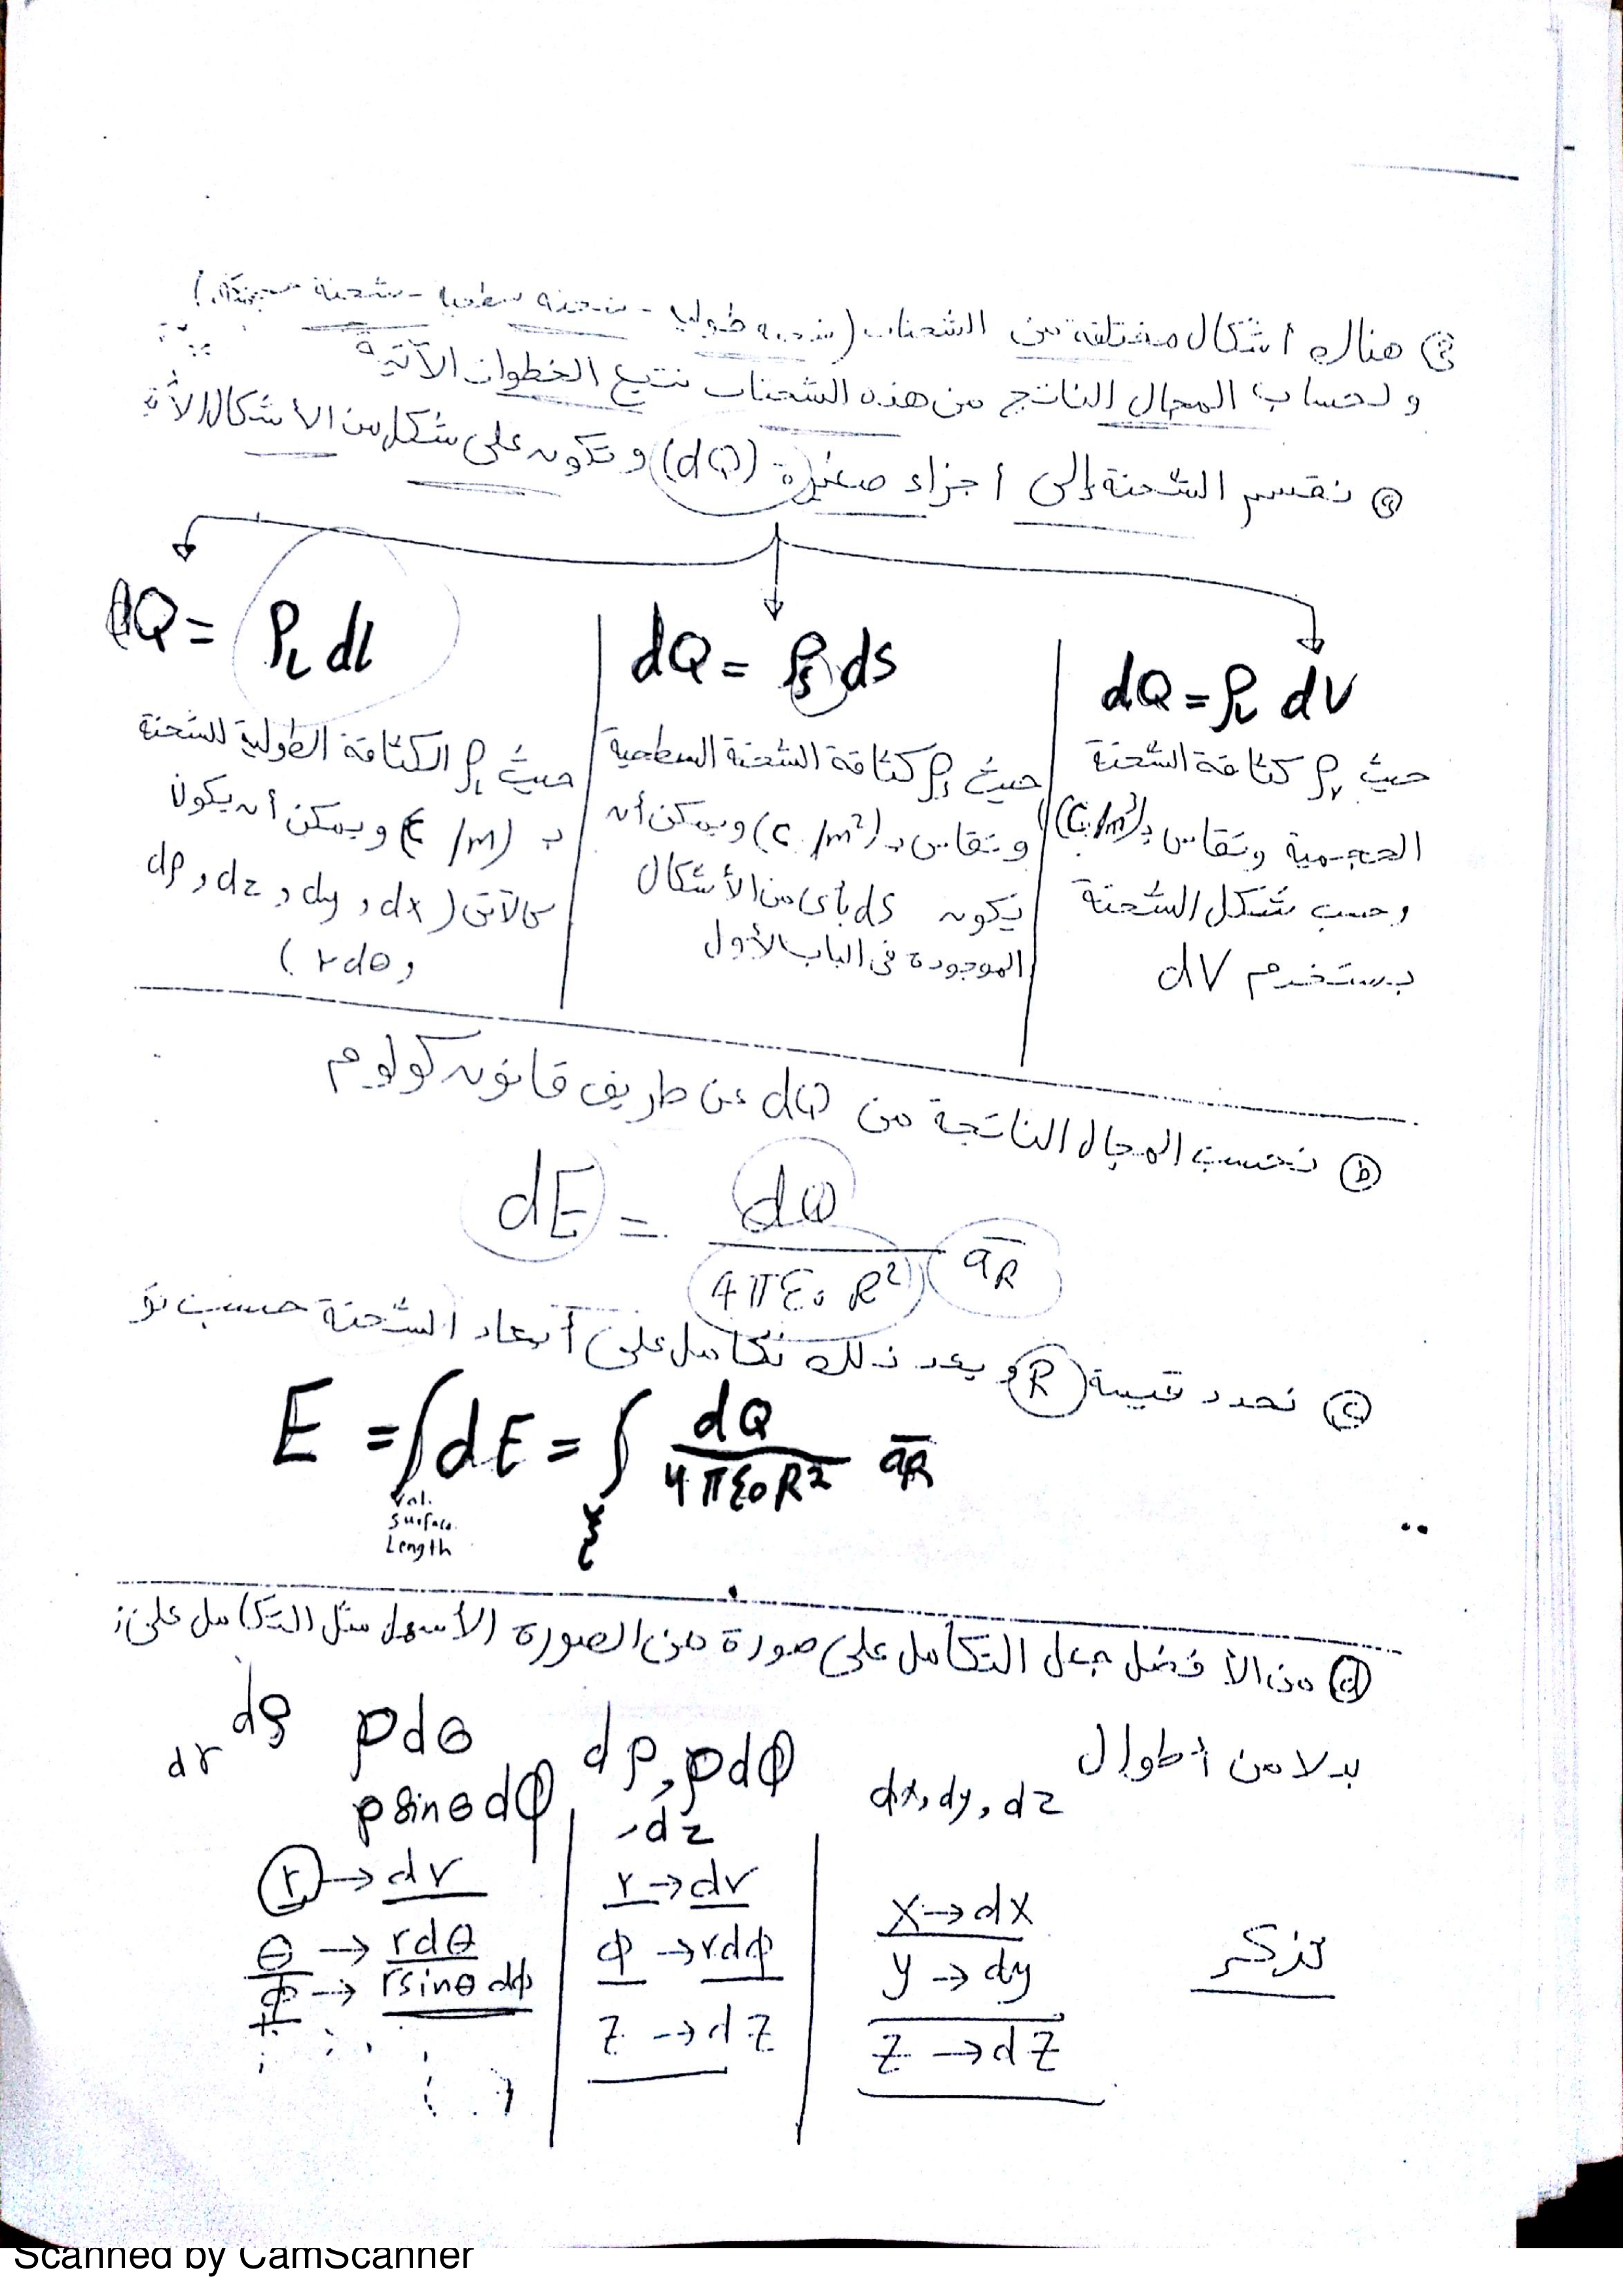 هناك أشكال مختلفة من الشحنات (شحنه طوليه - شحنه سطحيه - شحنة
و لحساب المجال الناتج من هذه الشحنات نتبع الخطوات الآتية
ⓐ نقسم الشحنة إلى أجزاء صغيرة (dQ) و تكون على شكل من الأشكال
dQ = ρL dl
dQ = ρs ds
dQ = ρv dv
حيث ρL الكثافة الطولية للشحنة
بـ (C/m) ويمكن أن يكون
كالآتى (dx و dy و dz و dρ
و rdθ)
حيث ρs كثافة الشحنة السطحية
وتقاس بـ (C/m²) ويمكن أن
تكون ds بأى من الأشكال
الموجودة فى الباب الأول
حيث ρv كثافة الشحنة
الحجمية وتقاس بـ (C/m³)
وحسب شكل الشحنة
يستخدم dV
ⓑ نحسب المجال الناتجة من dQ عن طريق قانون كولوم
dE = dQ / 4πε₀R² āR
ⓒ نحدد قيمة R و بعد ذلك نكامل على أبعاد الشحنة حسب
E = ∫dE = ∫ dQ / 4πε₀R² āR
Vol.
Surface
Length
ⓓ من الأفضل جعل التكامل على صورة من الصورة الأسهل مثل التكامل على:
بدلا من أطوال
dx, dy, dz
dρ, ρdφ
, dz
dρ ρdθ
dr
ρsinθdφ
تذكر
x → dx
y → dy
z → dz
r → dr
φ → rdφ
z → dz
r → dr
θ → rdθ
φ → rsinθ dφ
Scanned by CamScanner